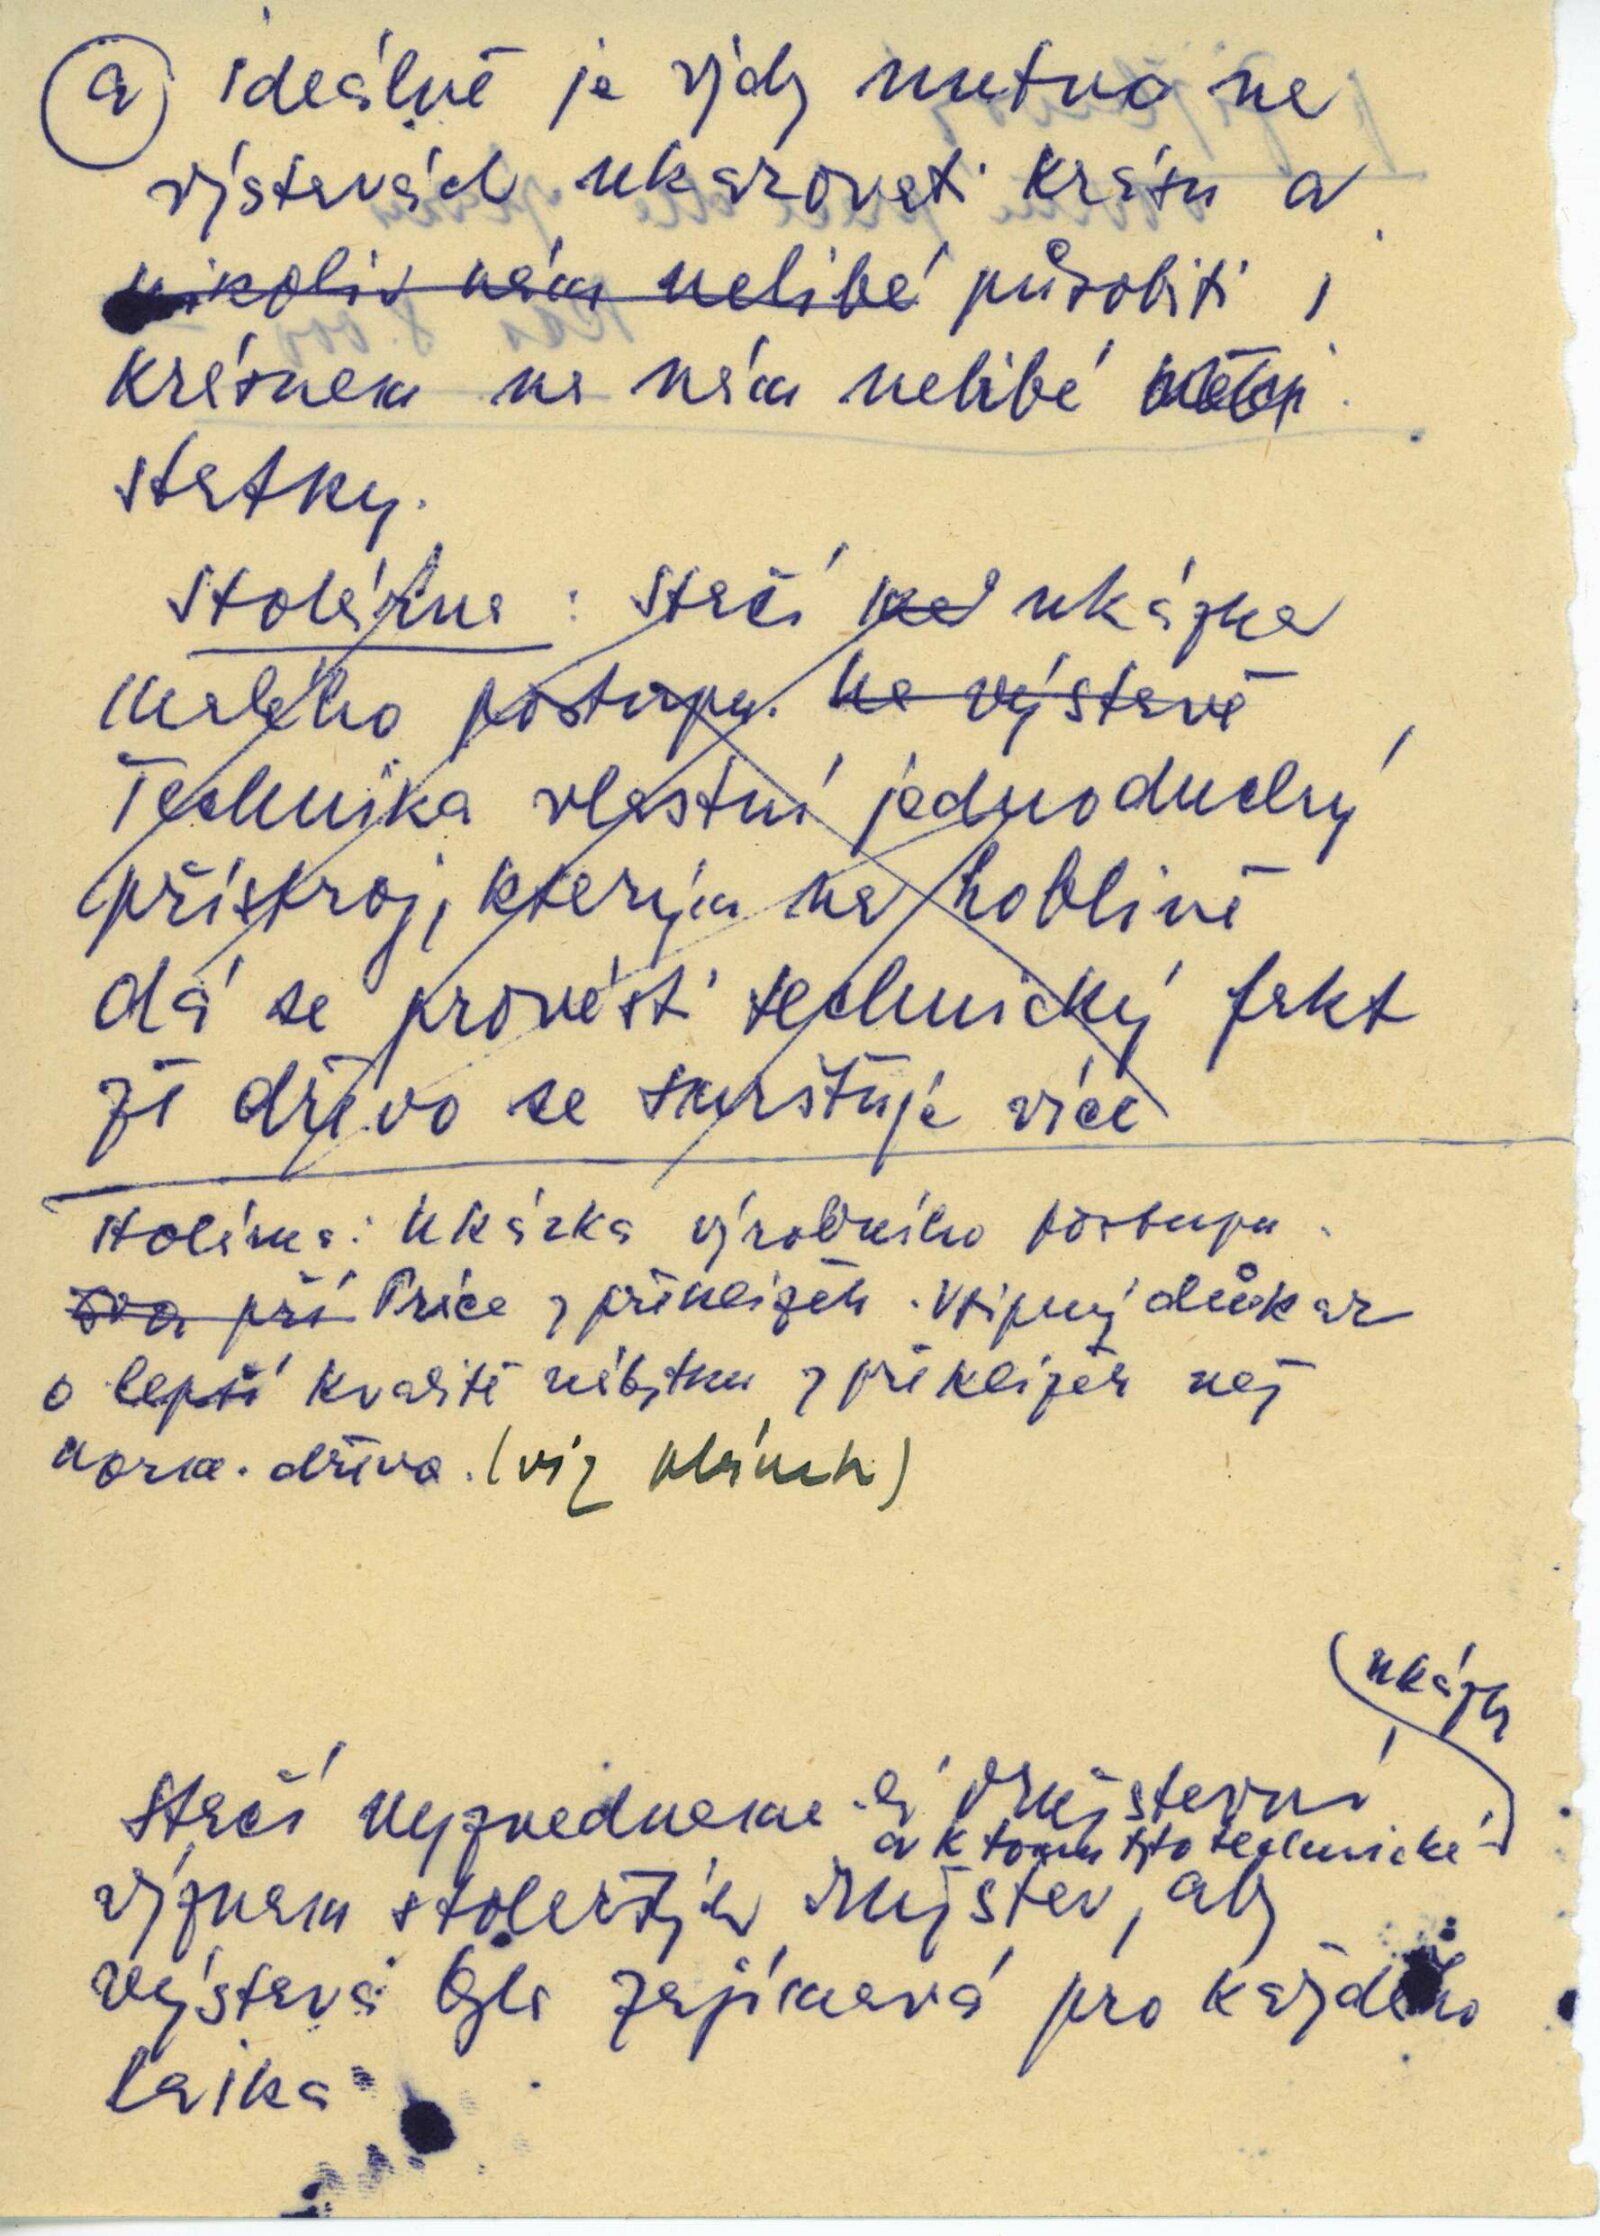 a ideálně je vždy nutno na
výstavách ukazovati krásu a
nikoliv nám nelibé působiti i
krásnem na nám nelibé
statky.
Stolárna : Stačí ukázka
malého postupu. na výstavě
Technika vlastní jednoduchý
přístroj, kterým na hoblině
dá se provésti technický fakt
že dřevo se smršťuje více
Stolárna: Ukázka výrobního postupu.
při Práce z překližek. Vtipný důkaz
o lepší kvalitě nábytku z překližek než
norm. dřeva. (viz plánek)
ukázky
Stačí vyzvedneme-li mužstevní
a k tomu tyto technické
význam stolařských mužstev, aby
výstava byla zajímavá pro každého
laika